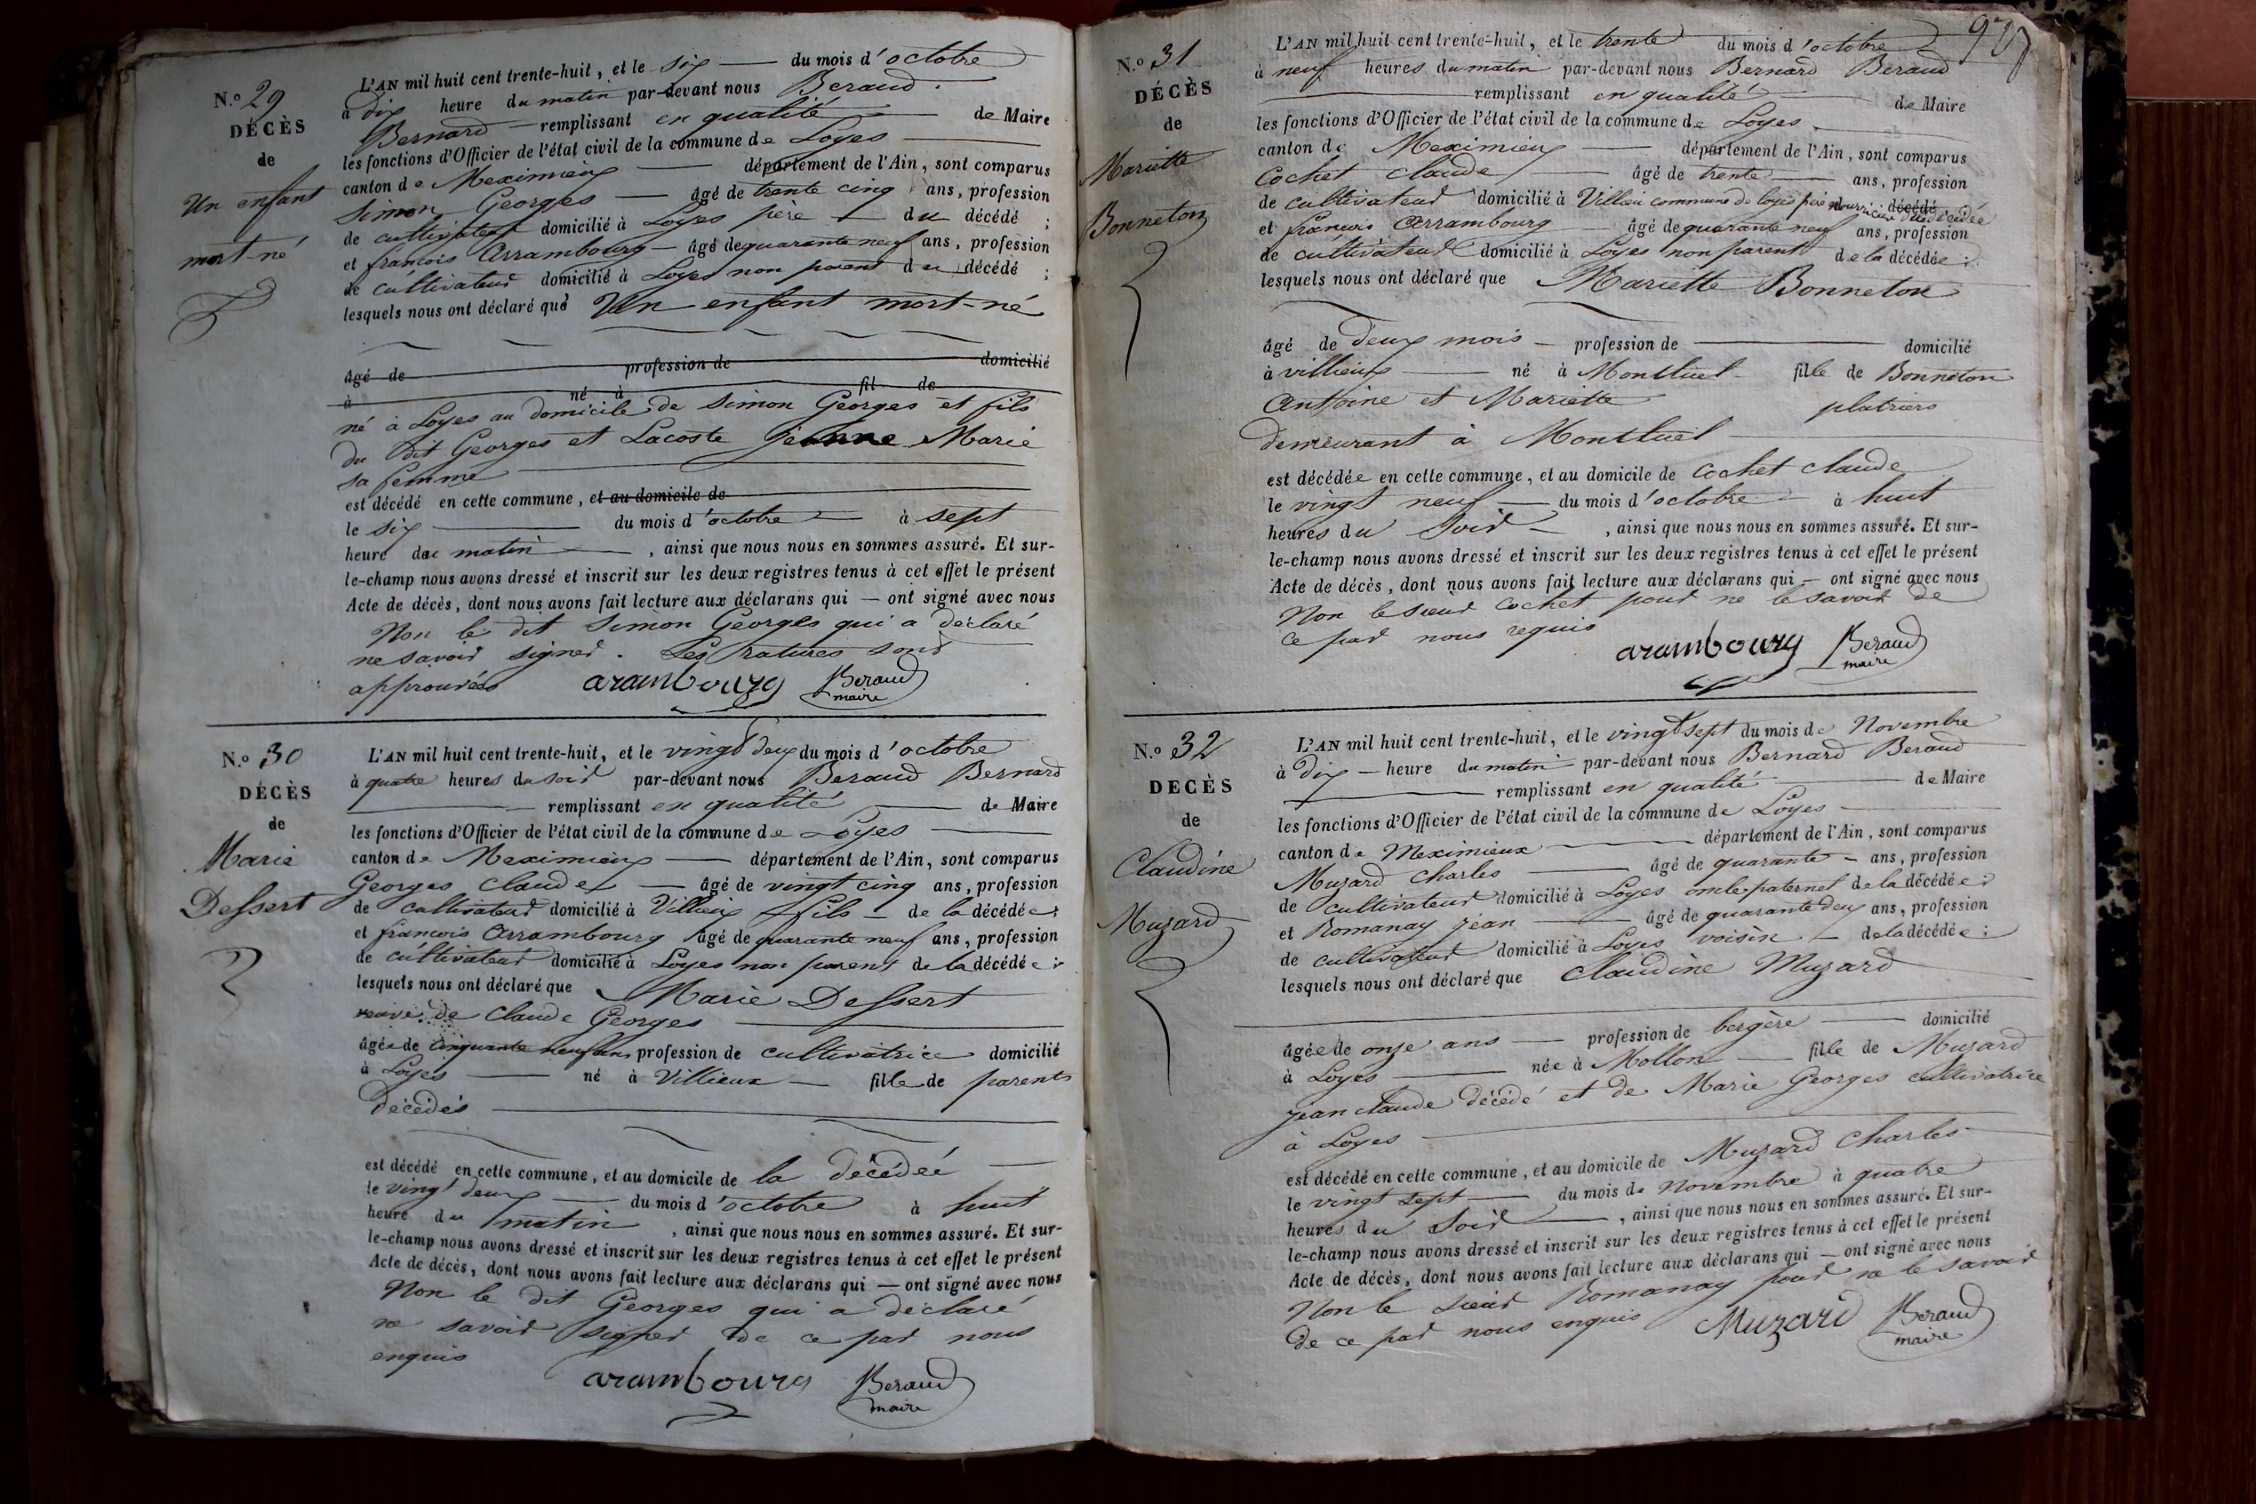 N.o 29
DÉCÈS
de
Un enfant
mort-né
L'AN mil huit cent trente-huit, et le six du mois d'octobre
à dix heure du matin par-devant nous Beraud
Bernard remplissant en qualité de Maire
les fonctions d'Officier de l'état civil de la commune de Loyes
canton de Meximieux département de l'Ain, sont comparus
Simon Georges âgé de trente cinq ans, profession
de cultivateur domicilié à Loyes père du décédé ;
et francois Arrambourg âgé de quarante neuf ans, profession
de cultivateur domicilié à Loyes non parent du décédé ;
lesquels nous ont déclaré que Un enfant mort-né
âgé de profession de domicilié
à né à fil de
né à Loyes au domicile de Simon Georges et fils
du dit Georges et Lacoste Jeanne Marie
sa femme
est décédé en cette commune, et au domicile de
le six du mois d'octobre à sept
heure du matin, ainsi que nous nous en sommes assuré. Et sur-
le-champ nous avons dressé et inscrit sur les deux registres tenus à cet effet le présent
Acte de décès, dont nous avons fait lecture aux déclarans qui — ont signé avec nous
Non le dit Simon Georges qui a déclaré
ne savoir signer. Les ratures sont
approuvées arambourg Beraud
maire
N.o 30
DÉCÈS
de
Marie
Dessert
L'AN mil huit cent trente-huit, et le vingt deux du mois d'octobre
à quatre heures du soir par-devant nous Beraud Bernard
remplissant en qualité de Maire
les fonctions d'Officier de l'état civil de la commune de Loyes
canton de Meximieux département de l'Ain, sont comparus
Georges Claude âgé de vingt cinq ans, profession
de cultivateur domicilié à Villieux fils de la décédée ;
et francois Arrambourg âgé de quarante neuf ans, profession
de cultivateur domicilié à Loyes non parent de la décédée ;
lesquels nous ont déclaré que Marie Dessert
veuve de Claude Georges
âgée de cinquante neuf ans profession de cultivatrice domicilié
à Loyes né à Villieux fille de parents
décédés
est décédé en cette commune, et au domicile de la décédée
le vingt deux du mois d'octobre à huit
heure du matin, ainsi que nous nous en sommes assuré. Et sur-
le-champ nous avons dressé et inscrit sur les deux registres tenus à cet effet le présent
Acte de décès, dont nous avons fait lecture aux déclarans qui — ont signé avec nous
Non le dit Georges qui a déclaré
ne savoir signer de ce par nous
enquis
arambourg Beraud
maire
N.o 31
DÉCÈS
de
Mariette
Bonneton
L'AN mil huit cent trente-huit, et le trente du mois d'octobre
à neuf heures du matin par-devant nous Bernard Beraud
remplissant en qualité de Maire
les fonctions d'Officier de l'état civil de la commune de Loyes
canton de Meximieux département de l'Ain, sont comparus
Cochet Claude âgé de trente ans, profession
de cultivateur domicilié à Villieu commune de loyes père nourricier décédé de la décédée
et francois Arrambourg âgé de quarante neuf ans, profession
de cultivateur domicilié à Loyes non parent de la décédée ;
lesquels nous ont déclaré que Mariette Bonneton
âgé de deux mois profession de domicilié
à villieux né à Montluel fille de Bonneton
Antoine et Mariette platriers
demeurant à Montluel
est décédée en cette commune, et au domicile de Cochet Claude
le vingt neuf du mois d'octobre à huit
heures du soir, ainsi que nous nous en sommes assuré. Et sur-
le-champ nous avons dressé et inscrit sur les deux registres tenus à cet effet le présent
Acte de décès, dont nous avons fait lecture aux déclarans qui — ont signé avec nous
Non le sieur Cochet pour ne le savoir de
ce par nous requis
arambourg Beraud
maire
N.o 32
DECÈS
de
Claudine
Muzard
L'AN mil huit cent trente-huit, et le vingt sept du mois de Novembre
à dix heure du matin par-devant nous Bernard Beraud
remplissant en qualité de Maire
les fonctions d'Officier de l'état civil de la commune de Loyes
canton de Meximieux département de l'Ain, sont comparus
Muzard Charles âgé de quarante ans, profession
de cultivateur domicilié à Loyes oncle paternel de la décédée ;
et Romanay jean âgé de quarante deux ans, profession
de cultivateur domicilié à Loyes voisin de la décédée ;
lesquels nous ont déclaré que Claudine Muzard
âgée de onze ans profession de bergère domicilié
à Loyes née à Mollon fille de Muzard
jean claude décédé et de Marie Georges cultivatrice
à Loyes
est décédé en cette commune, et au domicile de Muzard Charles
le vingt sept du mois de novembre à quatre
heures du soir, ainsi que nous nous en sommes assuré. Et sur-
le-champ nous avons dressé et inscrit sur les deux registres tenus à cet effet le présent
Acte de décès, dont nous avons fait lecture aux déclarans qui — ont signé avec nous
Non le sieur Romanay pour ne le savoir
de ce par nous enquis Muzard Beraud
maire